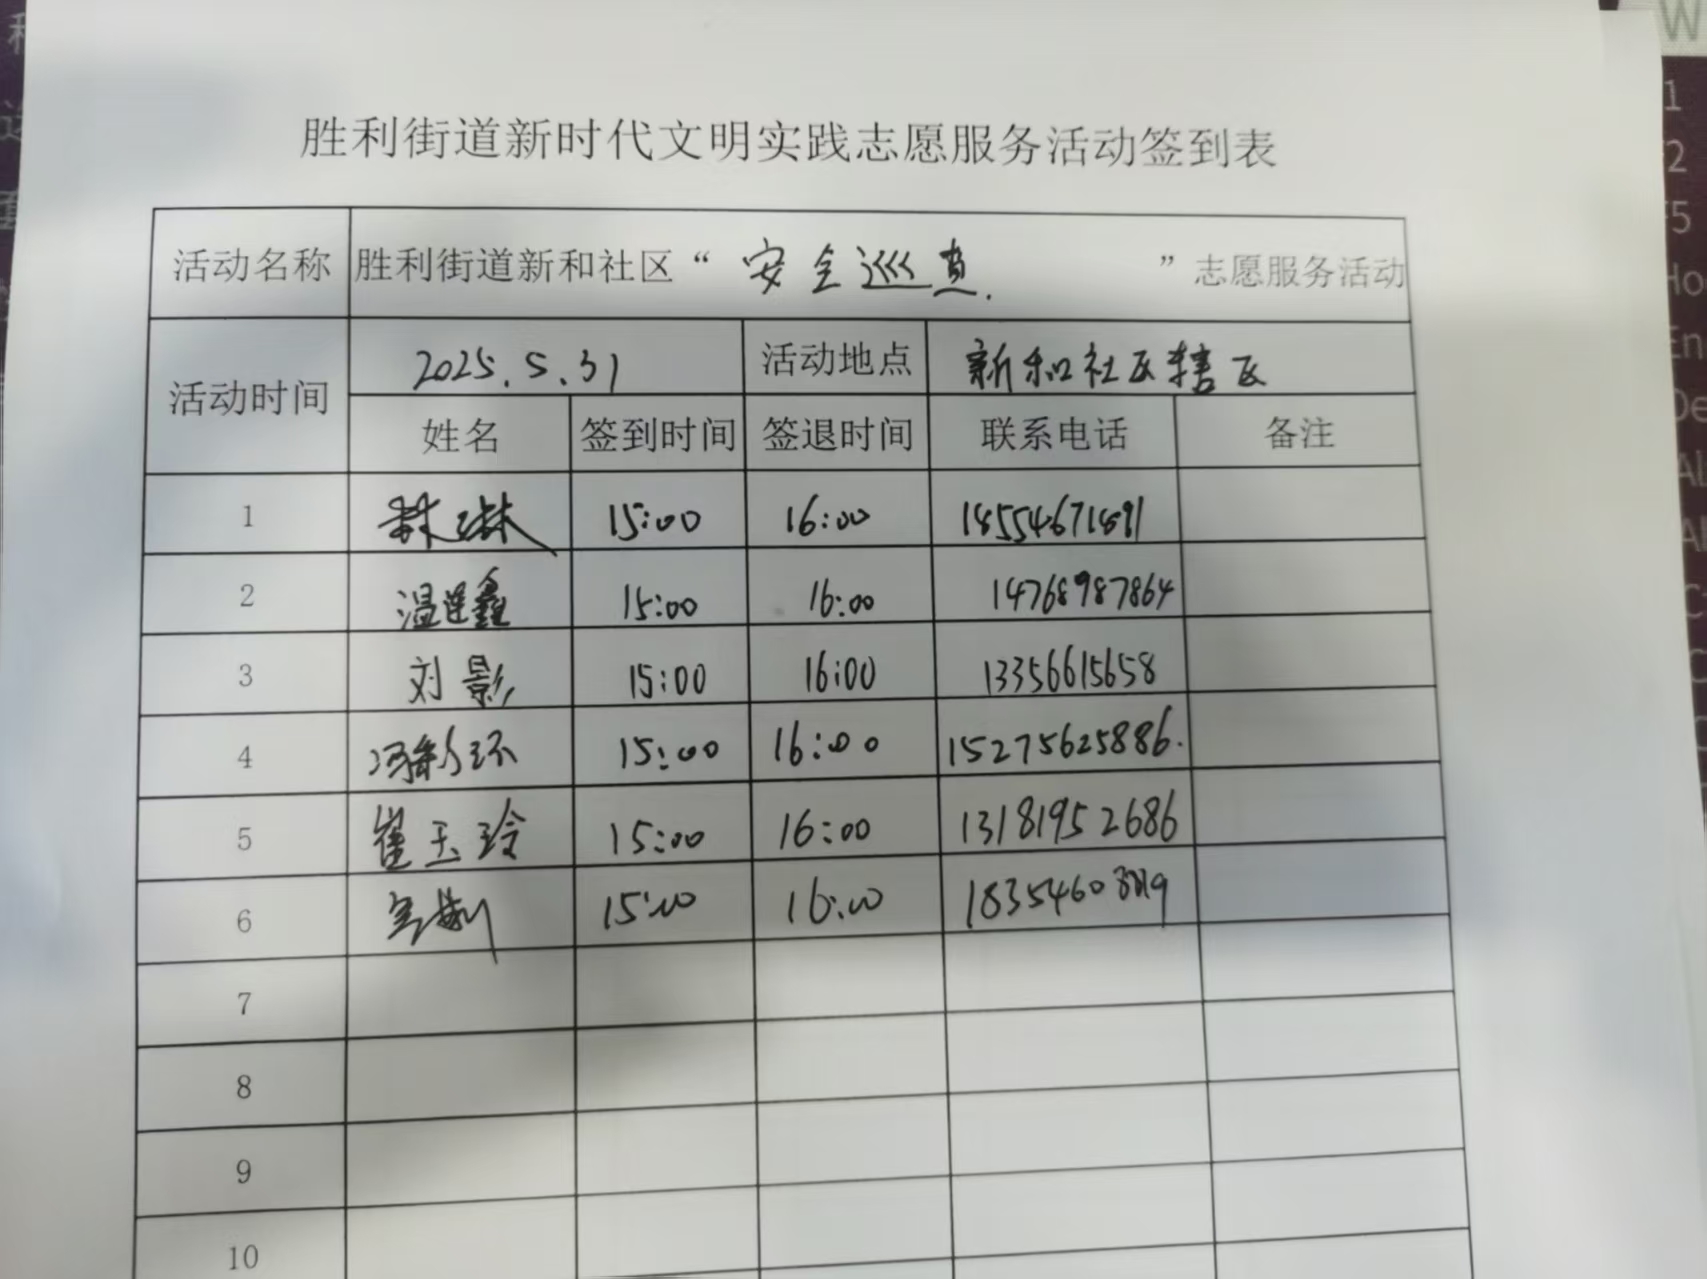 胜利街道新时代文明实践志愿服务活动签到表
活动名称 胜利街道新和社区“安全巡查.”志愿服务活动
活动时间 2025.5.31 活动地点 新和社区辖区
姓名 签到时间 签退时间 联系电话 备注
1 15:00 16:00
2 温 鑫 15:00 16:00 14768987864
3 刘影 15:00 16:00 13356615658
4 冯新环 15:00 16:00 15275625886.
5 崔玉玲 15:00 16:00 13181952686
6 15:00 16:00
7
8
9
10
W
1
2
5